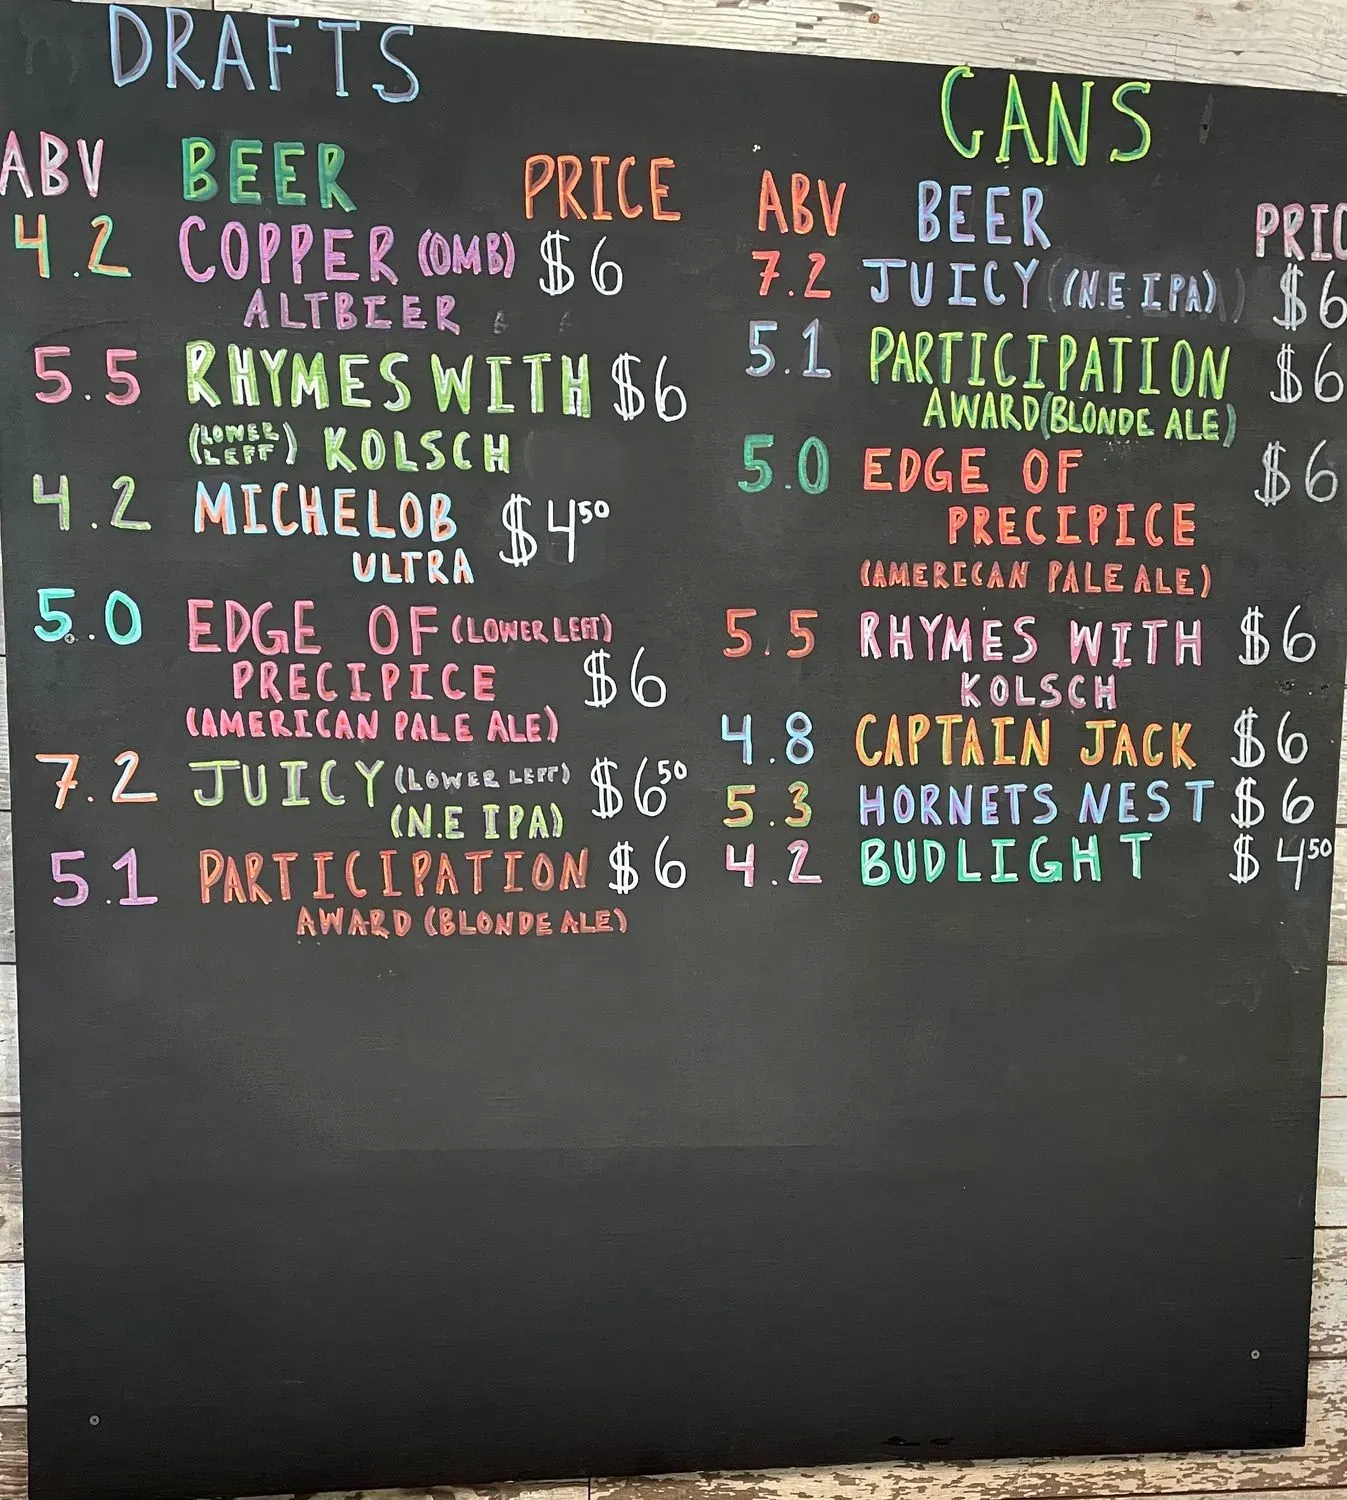 DRAFTS
ABV BEER PRICE
4.2 COPPER (OMB) $6
ALTBIER
5.5 RHYMES WITH $6
(LOWER LEFT) KOLSCH
4.2 MICHELOB $4.50
ULTRA
5.0 EDGE OF (LOWER LEFT)
PRECIPICE $6
(AMERICAN PALE ALE)
7.2 JUICY (LOWER LEFT) $6.50
(N.E IPA)
5.1 PARTICIPATION $6
AWARD (BLONDE ALE)
CANS
ABV BEER PRIC
7.2 JUICY (N.E IPA) $6
5.1 PARTICIPATION $6
AWARD (BLONDE ALE)
5.0 EDGE OF $6
PRECIPICE
(AMERICAN PALE ALE)
5.5 RHYMES WITH $6
KOLSCH
4.8 CAPTAIN JACK $6
5.3 HORNETS NEST $6
4.2 BUDLIGHT $4.50